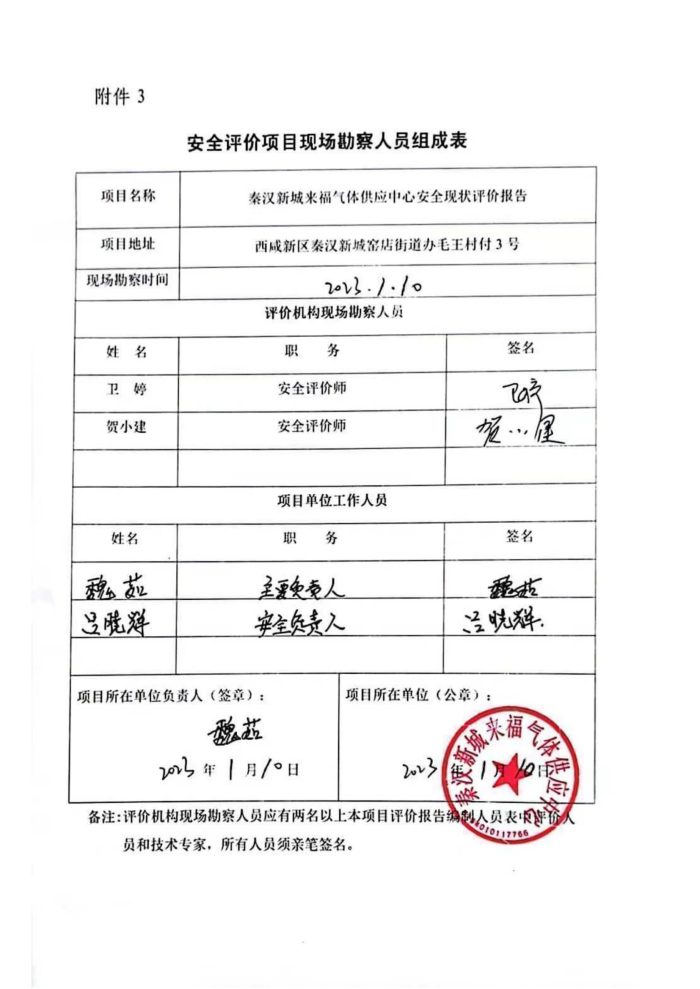 附件 3
安全评价项目现场勘察人员组成表
项目名称 秦汉新城来福气体供应中心安全现状评价报告
项目地址 西咸新区秦汉新城窑店街道办毛王村付 3 号
现场勘察时间 2023.1.10
评价机构现场勘察人员
姓 名 职 务 签名
卫 婷 安全评价师 卫婷
贺小建 安全评价师 贺小建
项目单位工作人员
姓名 职 务 签名
魏茹 主要负责人 魏茹
吕晓辉 安全负责人 吕晓辉
项目所在单位负责人（签章）： 项目所在单位（公章）：
魏茹
2023 年 1 月 10 日 2023 年 1 月 10 日
秦汉新城来福气体供应中心
备注:评价机构现场勘察人员应有两名以上本项目评价报告编制人员表中评价人
员和技术专家，所有人员须亲笔签名。